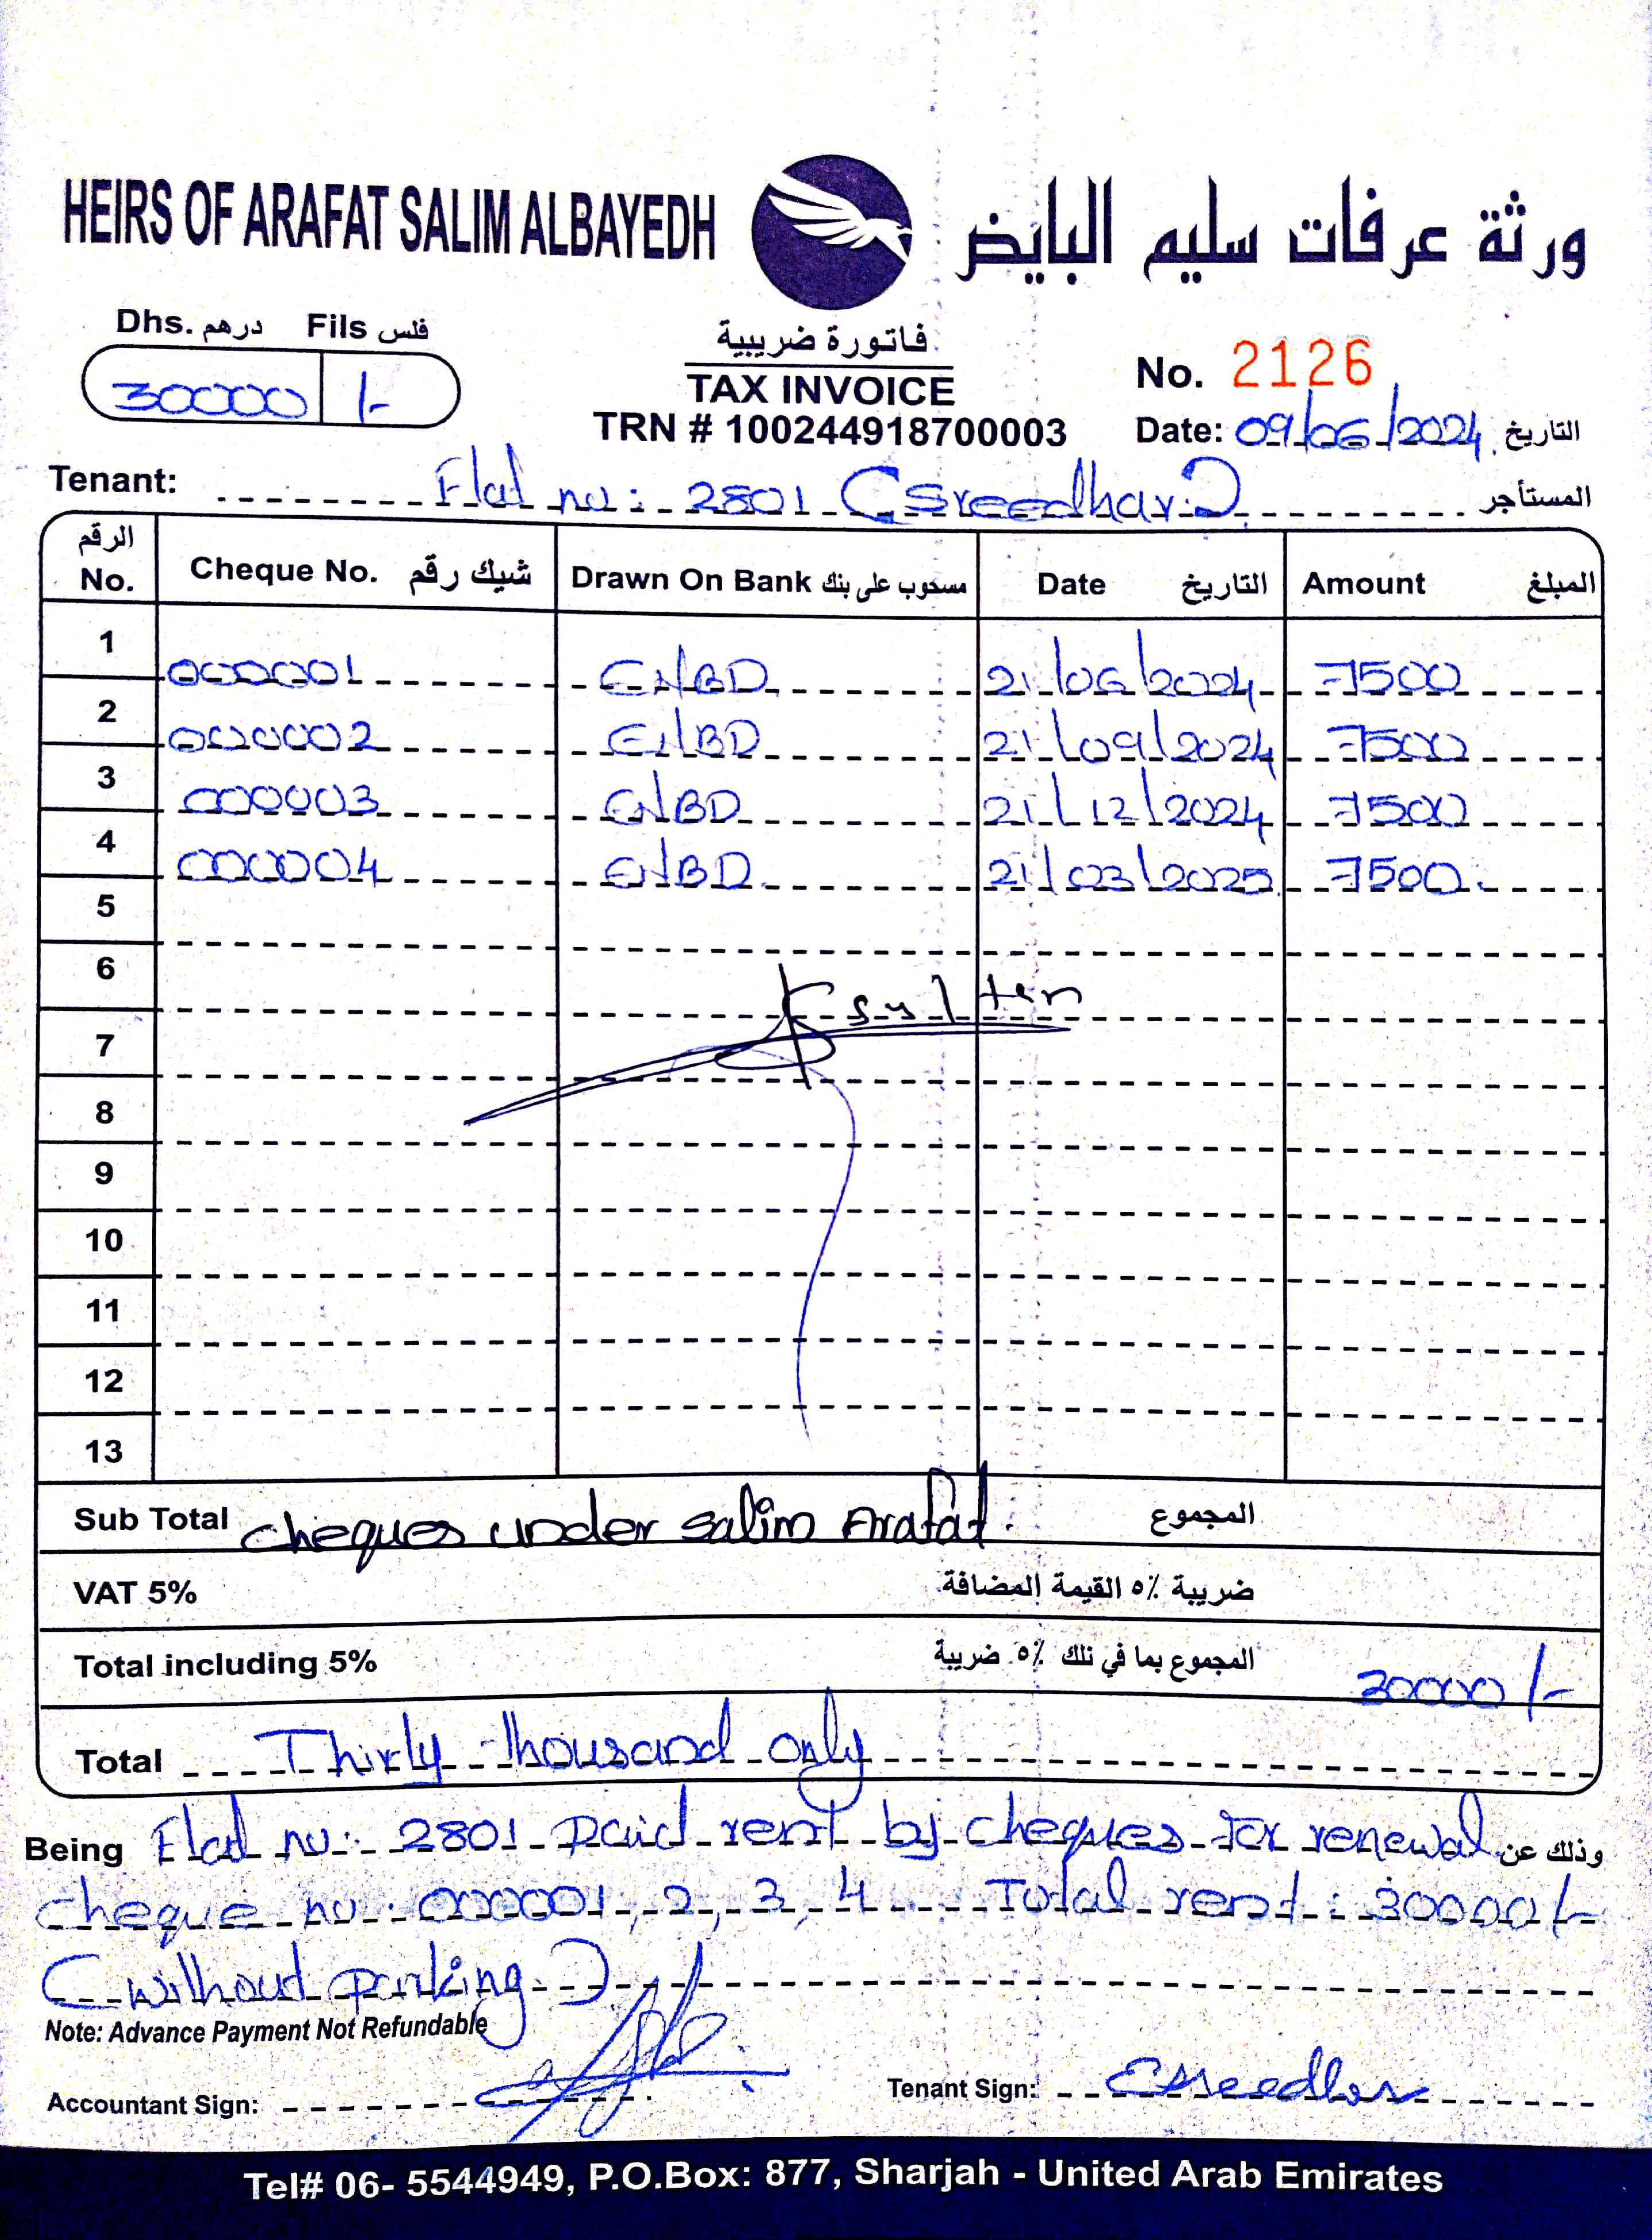 HEIRS OF ARAFAT SALIM ALBAYEDH ورثة عرفات سليم البايض
Dhs. درهم Fils فلس
30000 /-
فاتورة ضريبية
TAX INVOICE
TRN # 100244918700003
No. 2126
Date: 09/06/2024 التاريخ
Tenant: Flat no: 2801 (Sreedhar) المستأجر
الرقم No. Cheque No. شيك رقم Drawn On Bank مسحوب على بنك Date التاريخ Amount المبلغ
1 000001 ENBD 21/06/2024 7500
2 000002 ENBD 21/09/2024 7500
3 000003 ENBD 21/12/2024 7500
4 000004 ENBD 21/03/2025 7500
5
6
7
8
9
10
11
12
13
Sub Total cheques under salim Arafat. المجموع
VAT 5% ضريبة ٥٪ القيمة المضافة
Total including 5% المجموع بما في ذلك ٥٪ ضريبة 30000/-
Total Thirty thousand only
Being Flat no: 2801 paid rent by cheques for renewal وذلك عن
cheque no: 000001, 2, 3, 4 Total rent: 30000/-
(without parking)
Note: Advance Payment Not Refundable
Accountant Sign: Tenant Sign: Sreedhar
Tel# 06- 5544949, P.O.Box: 877, Sharjah - United Arab Emirates